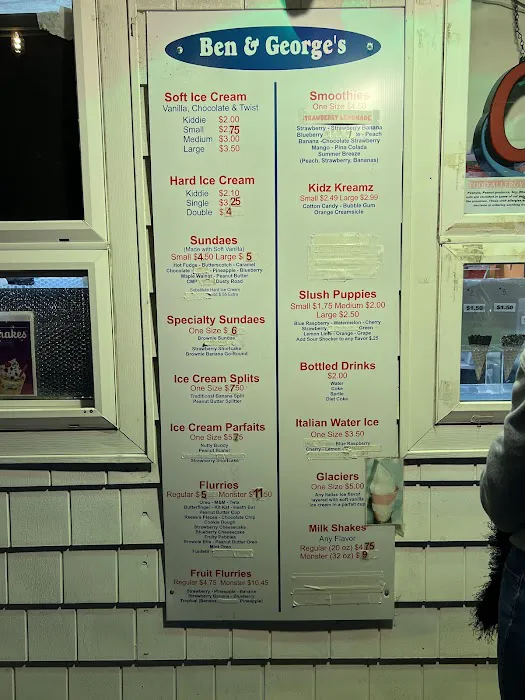 Ben & George's
Soft Ice Cream
Vanilla, Chocolate & Twist
Kiddie $2.00
Small $2.75
Medium $3.00
Large $3.50
Hard Ice Cream
Kiddie $2.10
Single $3.25
Double $4
Sundaes
(Made with Soft Vanilla)
Small $4.50 Large $5
Hot Fudge - Butterscotch - Caramel
Chocolate - Pineapple - Blueberry
Maple Walnut - Peanut Butter
Dusty Road
Substitute Hard Ice Cream
Specialty Sundaes
One Size $6
Brownie Sundae
Strawberry Shortcake
Brownie Banana Go-Round
Ice Cream Splits
One Size $7.50
Traditional Banana Split
Peanut Butter Splitter
Ice Cream Parfaits
One Size $5.75
Nutty Buddy
Peanut Buster
Strawberry Shortcake
Flurries
Regular $5 Monster $11.50
Oreo - M&M - Twix
Butterfinger - Kit Kat - Heath Bar
Peanut Butter Cup
Reese's Pieces - Chocolate Chip
Cookie Dough
Strawberry Cheesecake
Blueberry Cheesecake
Fruity Pebbles
Brownie Bite - Peanut Butter Oreo
Mint Oreo
Fruit Flurries
Regular $4.75 Monster $10.45
Strawberry - Pineapple - Banana
Strawberry Banana - Blueberry
Tropical Pineapple)
Smoothies
One Size $4.50
STRAWBERRY LEMONADE
Strawberry - Strawberry Banana
Blueberry - Peach
Banana - Chocolate Strawberry
Mango - Pina Colada
Summer Breeze
(Peach, Strawberry, Bananas)
Kidz Kreamz
Small $2.49 Large $2.99
Cotton Candy - Bubble Gum
Orange Creamsicle
Slush Puppies
Small $1.75 Medium $2.00
Large $2.50
Blue Raspberry - Watermelon - Cherry
Strawberry Green
Lemon Lime - Orange - Grape
Add Sour Shocker to any flavor $.25
Bottled Drinks
$2.00
Water
Coke
Sprite
Diet Coke
Italian Water Ice
One Size $3.50
Blue Raspberry
Cherry - Lemon
Glaciers
One Size $5.00
Any Italian Ice flavor
layered with soft vanilla
ice cream in a parfait cup
Milk Shakes
Any Flavor
Regular (20 oz) $4.75
Monster (32 oz) $9
FOOD ALLERGY
$1.50
$1.50